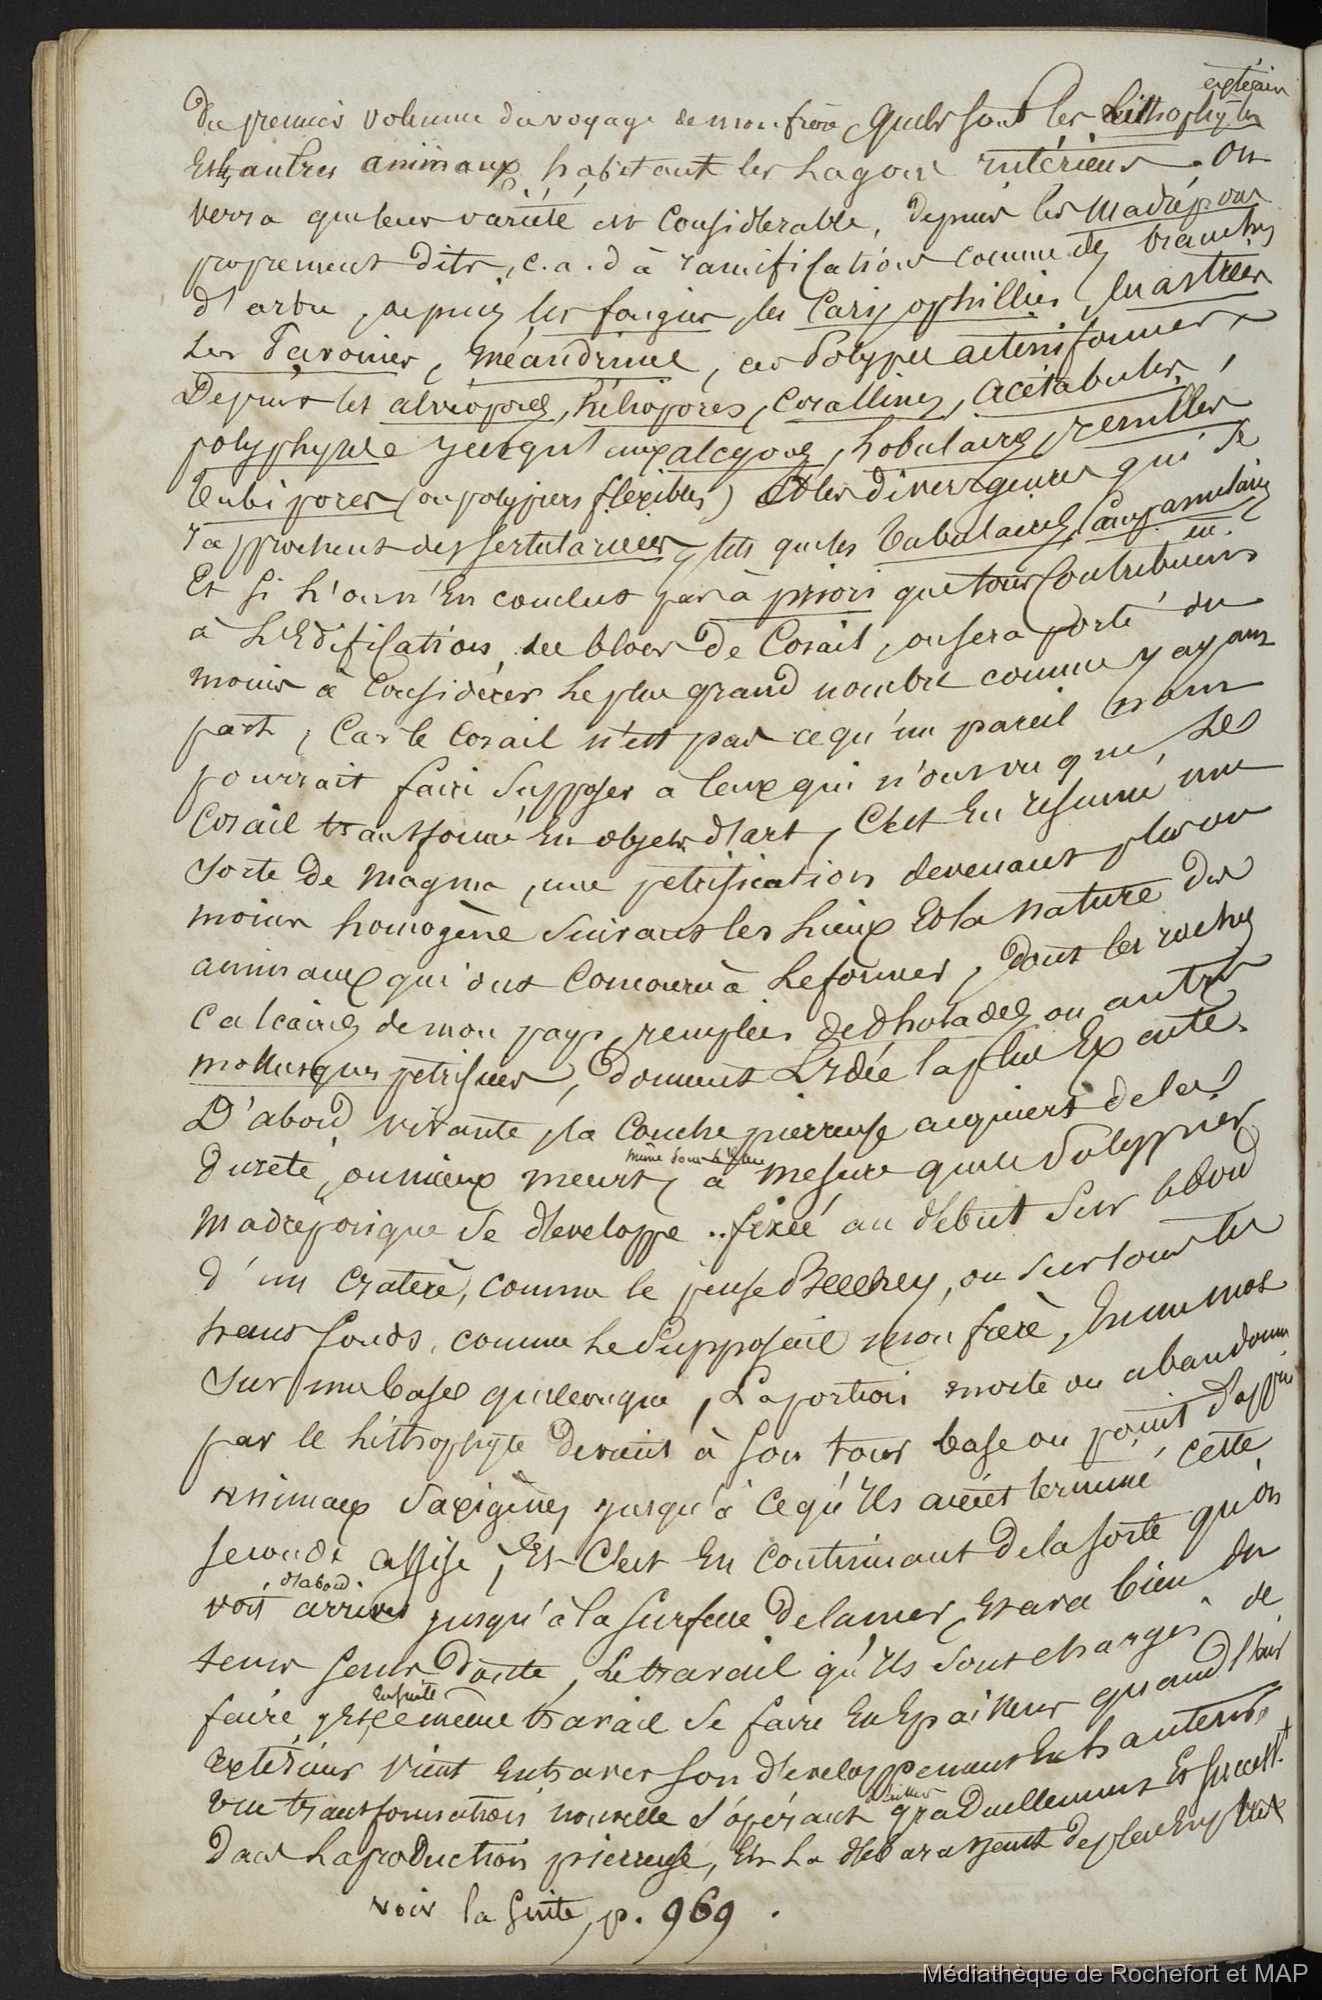 extérieur
Du premier volume du voyage de mon frère, quels sont les Lithophytes
Et les autres animaux habitant les Lagons intérieurs. on
verra que leur variété est Considérable, depuis les Madrépores
proprement dits, c.a.d à ramifications comme des branches
d'arbre, depuis les fongies, les Caryophillies, les astrées
Les Pavonies, Méandrines, ces Polypes actiniformes
Depuis les alvéopores, héliopores, Corallines, acétabules,
polyphyses jusqu'aux alcyons, Lobulaires, renilles
Tubipores (ou polypiers flexibles) Et les divergences qui se
rapprochent des sertulariées, tels que les Tubulaires, Campanulaires
Et si L'on n'En conclut pas à priori que tous Contribuent
à L'Edification des blocs De Corail, on sera porté du
moins à Considérer Le plus grand nombre comme y ayant
part, Car le Corail n'est pas ce qu'un pareil nom
pourrait faire Supposer à Ceux qui n'ont vu que Le
Corail transformé En objets d'art, C'est En résumé une
sorte de magma, une pétrification devenant plus ou
moins homogène Suivant les Lieux Et la nature des
animaux qui ont Concouru à Le former, Dont les roches
Calcaires de mon pays, remplies de Pholades ou autres
mollusques pétrifiés, Donnent L'Idée la plus Exacte.
D'abord vivante, la Couche pierreuse acquiert de la
même sous l'eau
Dureté, ou mieux meurt, à mesure que le Polypier
Madréporique Se développe .. fixée au début Sur le bord
d'un Cratère, comme le pense Beechey, ou Sur tous les
hauts fonds, comme Le Supposait mon frère, En un mot
Sur une base quelconque, La portion morte ou abandonnée
par le Lithophyte Devient à son tour base ou point d'appui
animaux Saxigènes jusqu'à ce qu'Ils aient terminé cette
seconde assise, Et C'est En Continuant de la sorte qu'on
d'abord
voit arriver jusqu'à la surface De la mer,
tenir Le travail qu'Ils sont chargés de
ensuite
faire, Et Ce même travail Se faire En Epaisseur quand l'air
Extérieur vient Entraver son développement En hauteur,
une transformation nouvelle s'opérant graduellement Et
Dans La production pierreuse, Et La débarassant de plus En plus
voir la Suite, p. 969.
Médiathèque de Rochefort et MAP